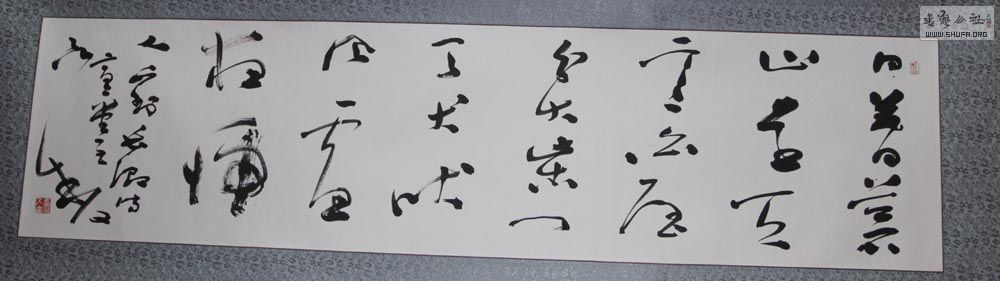 日暮蒼
山遠天
寒白屋
貧柴門
聞犬吠
風雪
夜歸
人 劉長卿詩
書藝公社
WWW.SHUFA.ORG